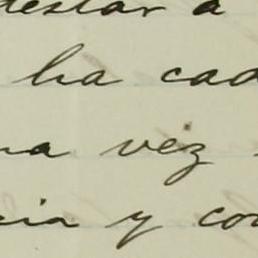 destar a
ha cad
na vez
cia y con